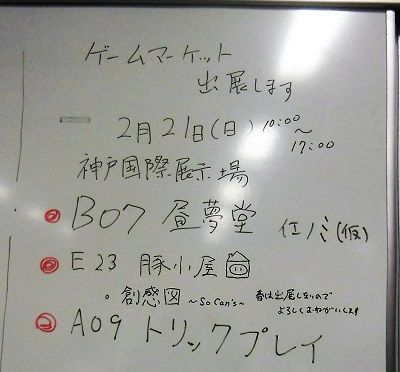 ゲームマーケット
出展します
2月21日(日) 10:00
～
17:00
神戸国際展示場
B07 昼夢堂
(仮)
E23 豚小屋
・創感図 ～So Can's～ 春は出展しないので
よろしくおねがいします
A09 トリックプレイ